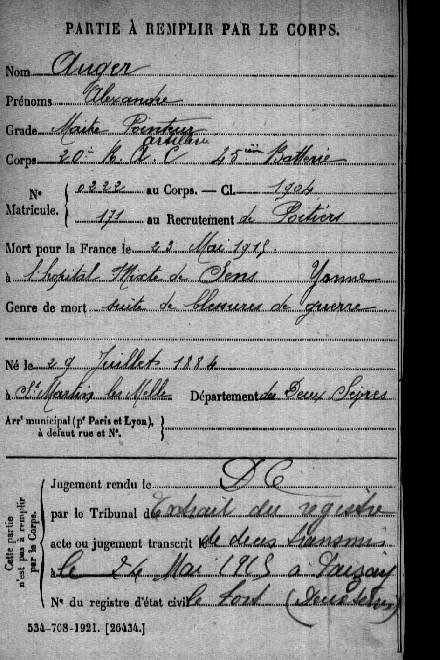 PARTIE À REMPLIR PAR LE CORPS.
Nom Auger
Prénoms Alexandre
Grade Maitre Pointeur
artillerie
Corps 20e R. A. C 45 ième Batterie
No Matricule. { 0222 au Corps. — Cl. 1904
171 au Recrutement de Poitiers
Mort pour la France le 22 Mai 1915
à l'hopital Mixte de Sens Yonne
Genre de mort suite de blessures de guerre
Né le 29 Juillet 1884
à St Martin les Melle Département des Deux Sèvres
Arrt municipal (pr Paris et Lyon), à défaut rue et No.
Cette partie n'est pas à remplir par le Corps.
Jugement rendu le D C
par le Tribunal de Extrait du registre
acte ou jugement transcrit le de deces transmis
à le 24 Mai 1915 a
No du registre d'état civil le tort
534-708-1921. [26434.]